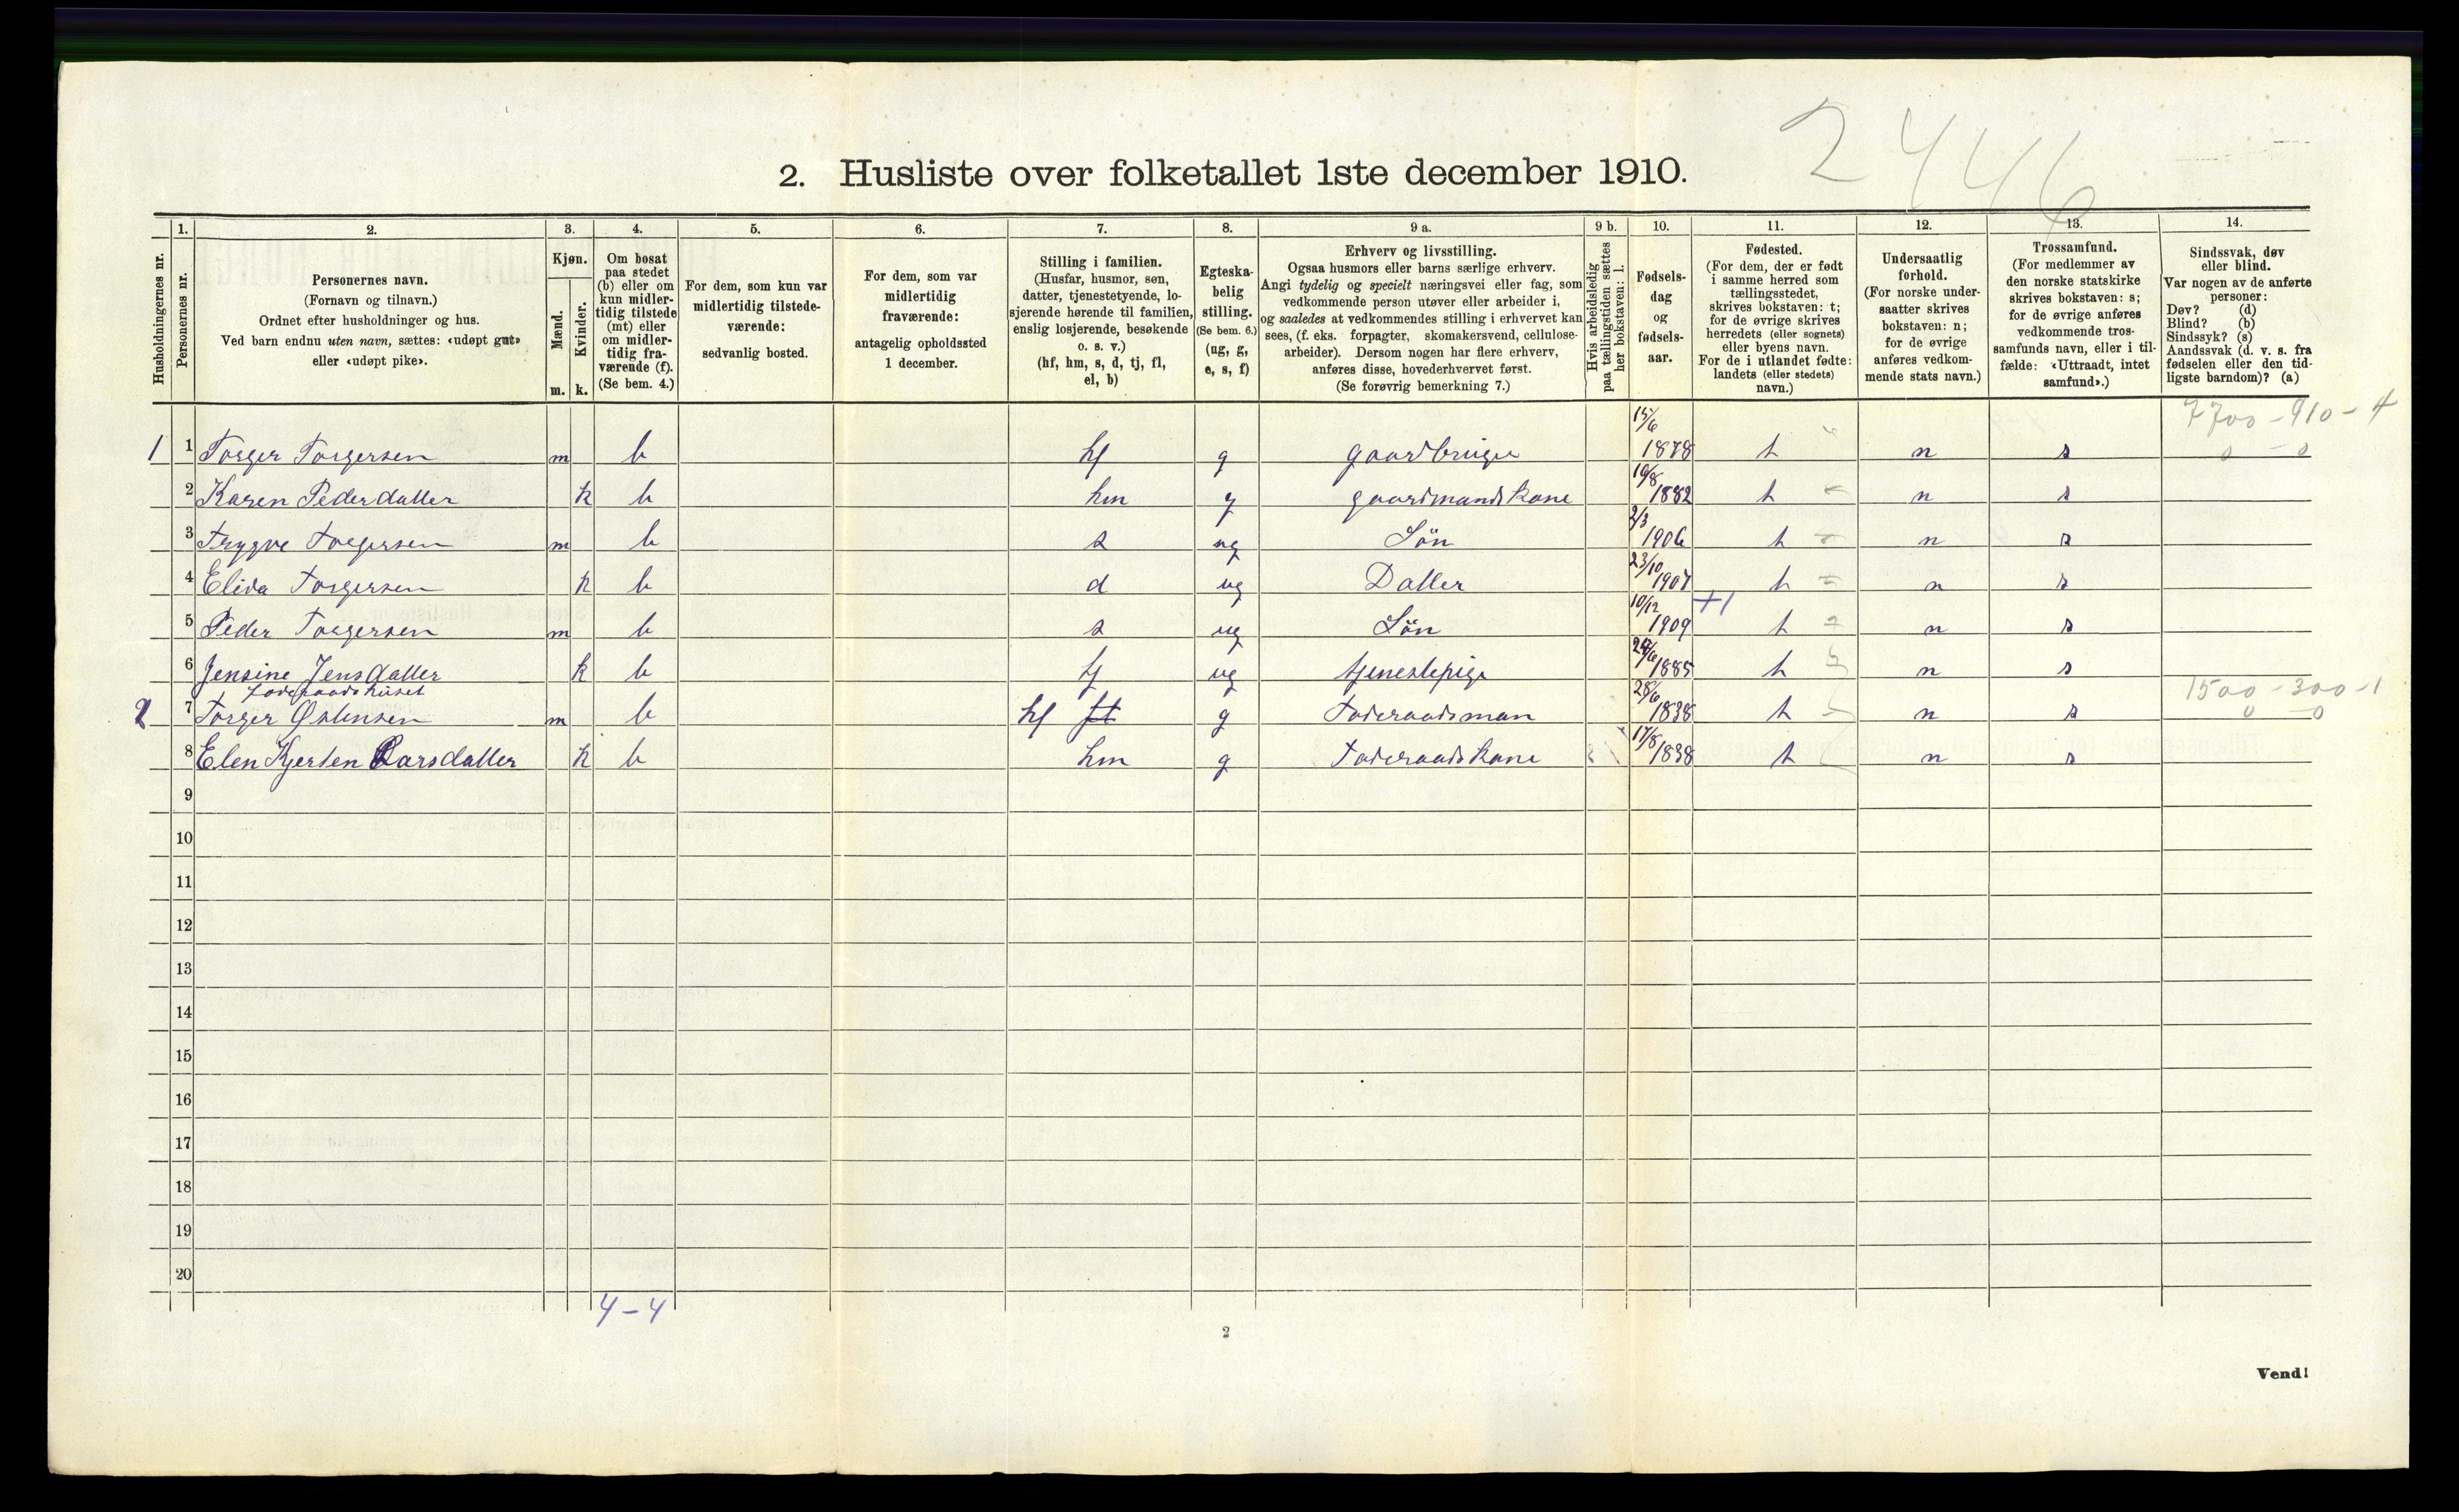 2446
2. Husliste over folketallet 1ste december 1910.
1. 2. 3. 4. 5. 6. 7. 8. 9 a. 9 b. 10. 11. 12. 13. 14.
Husholdningernes nr.
Personernes nr.
Personernes navn.
(Fornavn og tilnavn.)
Ordnet efter husholdninger og hus.
Ved barn endnu uten navn, sættes: «udøpt gut»
eller «udøpt pike».
Kjøn.
Mænd.
Kvinder.
m. k.
Om bosat
paa stedet
(b) eller om
kun midler-
tidig tilstede
(mt) eller
om midler-
tidig fra-
værende (f).
(Se bem. 4.)
For dem, som kun var
midlertidig tilstede-
værende:
sedvanlig bosted.
For dem, som var
midlertidig
fraværende:
antagelig opholdssted
1 december.
Stilling i familien.
(Husfar, husmor, søn,
datter, tjenestetyende, lo-
sjerende hørende til familien,
enslig losjerende, besøkende
o. s. v.)
(hf, hm, s, d, tj, fl,
el, b)
Egteska-
belig
stilling.
(Se bem. 6.)
(ug, g,
e, s, f)
Erhverv og livsstilling.
Ogsaa husmors eller barns særlige erhverv.
Angi tydelig og specielt næringsvei eller fag, som
vedkommende person utøver eller arbeider i,
og saaledes at vedkommendes stilling i erhvervet kan
sees, (f. eks. forpagter, skomakersvend, cellulose-
arbeider). Dersom nogen har flere erhverv,
anføres disse, hovederhvervet først.
(Se forøvrig bemerkning 7.)
Hvis arbeidsledig
paa tællingstiden sættes
her bokstaven: l.
Fødsels-
dag
og
fødsels-
aar.
Fødested.
(For dem, der er født
i samme herred som
tællingsstedet,
skrives bokstaven: t;
for de øvrige skrives
herredets (eller sognets)
eller byens navn.
For de i utlandet fødte:
landets (eller stedets)
navn.)
Undersaatlig
forhold.
(For norske under-
saatter skrives
bokstaven: n;
for de øvrige
anføres vedkom-
mende stats navn.)
Trossamfund.
(For medlemmer av
den norske statskirke
skrives bokstaven: s;
for de øvrige anføres
vedkommende tros-
samfunds navn, eller i til-
fælde: «Uttraadt, intet
samfund».)
Sindssvak, døv
eller blind.
Var nogen av de anførte
personer:
Døv? (d)
Blind? (b)
Sindssyk? (s)
Aandssvak (d. v. s. fra
fødselen eller den tid-
ligste barndom)? (a)
7700 - 910 - 4
1 1 Torger Torgersen m b hf g gaardbruger 15/6 1878 t n s 0 - 0
2 Karen Pedersdatter k b hm g gaardmandskone 1882 t n s
3 Trygve Torgersen m b s ug Sön 2/3 1906 t n s
4 Elida Torgersen k b d ug Datter 23/10 1907 t n s
5 Peder Torgersen m b s ug Sön 10/12 1909 +1 t n s
6 Jensine Jensdatter k b tj ug tjenestepige 1885 t n s
Foderaadshuset
1500 - 300 - 1
2 7 Torger Östensen m b hf g Foderaadsman 28/6 1838 t n s 0 - 0
8 Elen Kjersten Larsdatter k b hm g Foderaadskone 17/8 1838 t n s
9
10
11
12
13
14
15
16
17
18
19
20
4 - 4
2
Vend!